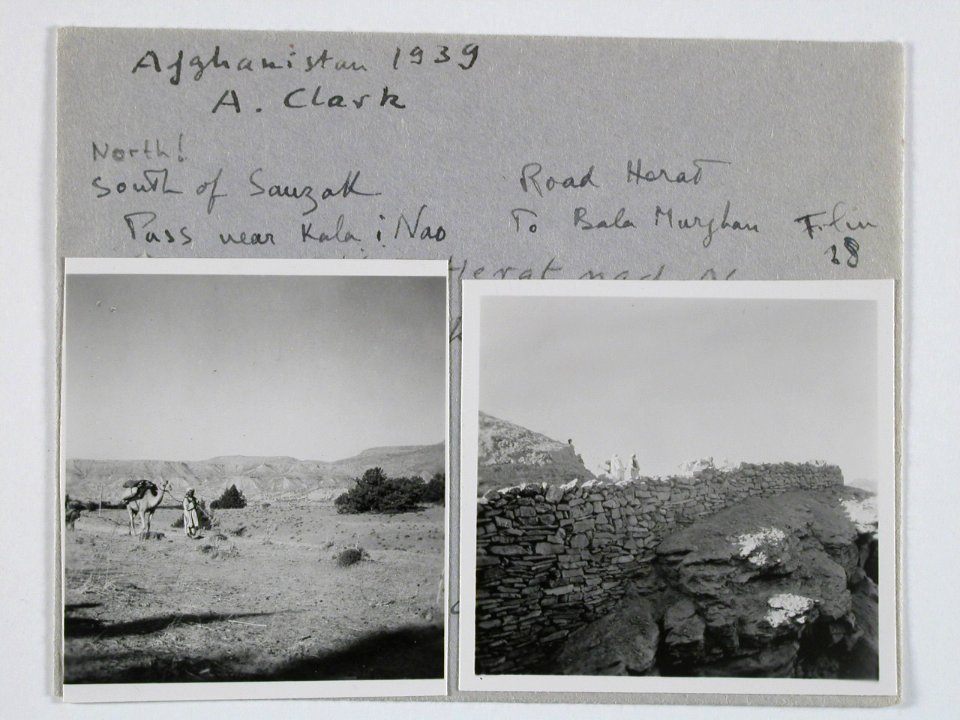 Afghanistan 1939
A. Clark
North!
South of Sauzak
Pass near Kala i Nao
Road Herat
To Bala Murghan
Film
28
Herat